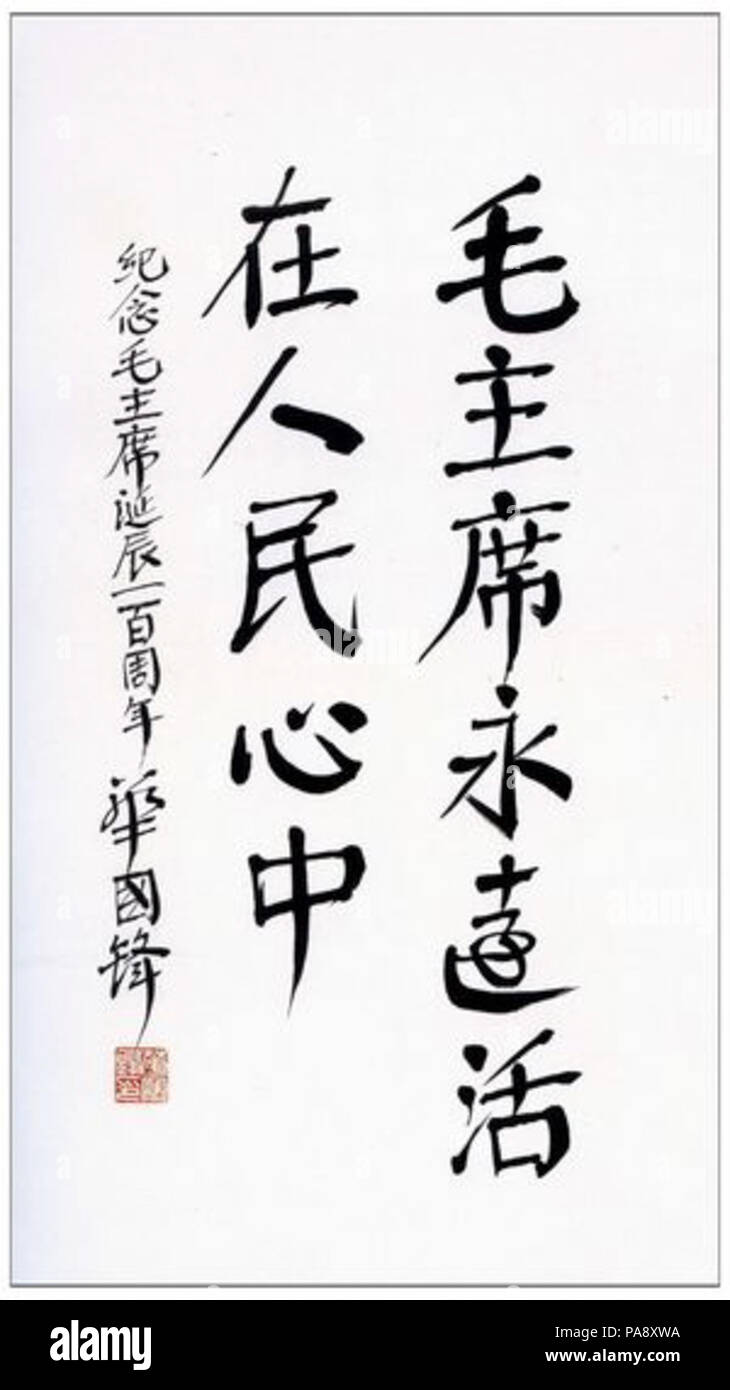 毛主席永遠活
在人民心中
纪念毛主席诞辰一百周年 華國锋
alamy
alamy
alamy
alamy
Image ID: PA8XWA
www.alamy.com